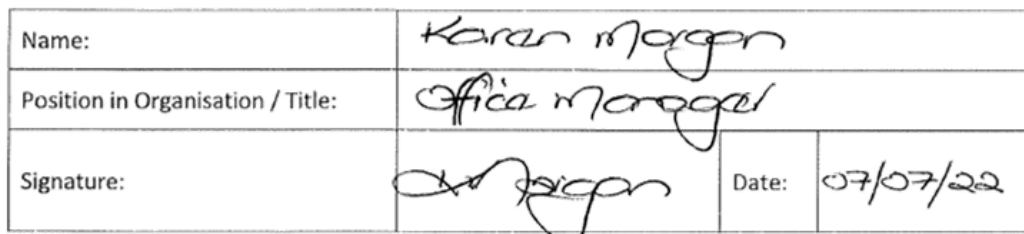 Name: Karen Morgan
Position in Organisation / Title: Office Manager
Signature: K Morgan Date: 07/07/22